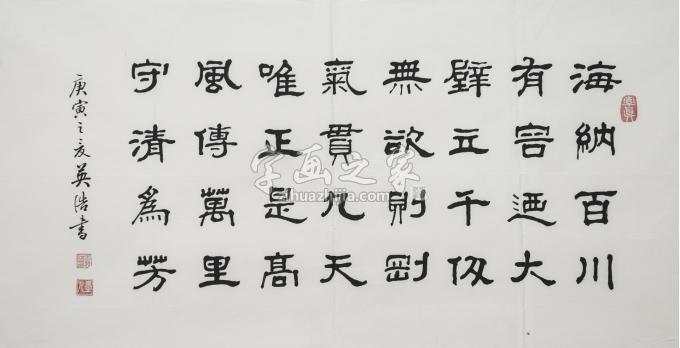 海納百川
有容迺大
壁立千仞
無欲則剛
氣貫九天
唯正是高
風傳萬里
守清爲芳
庚寅之夏英浩書
字画之家
zihuazhijia.com